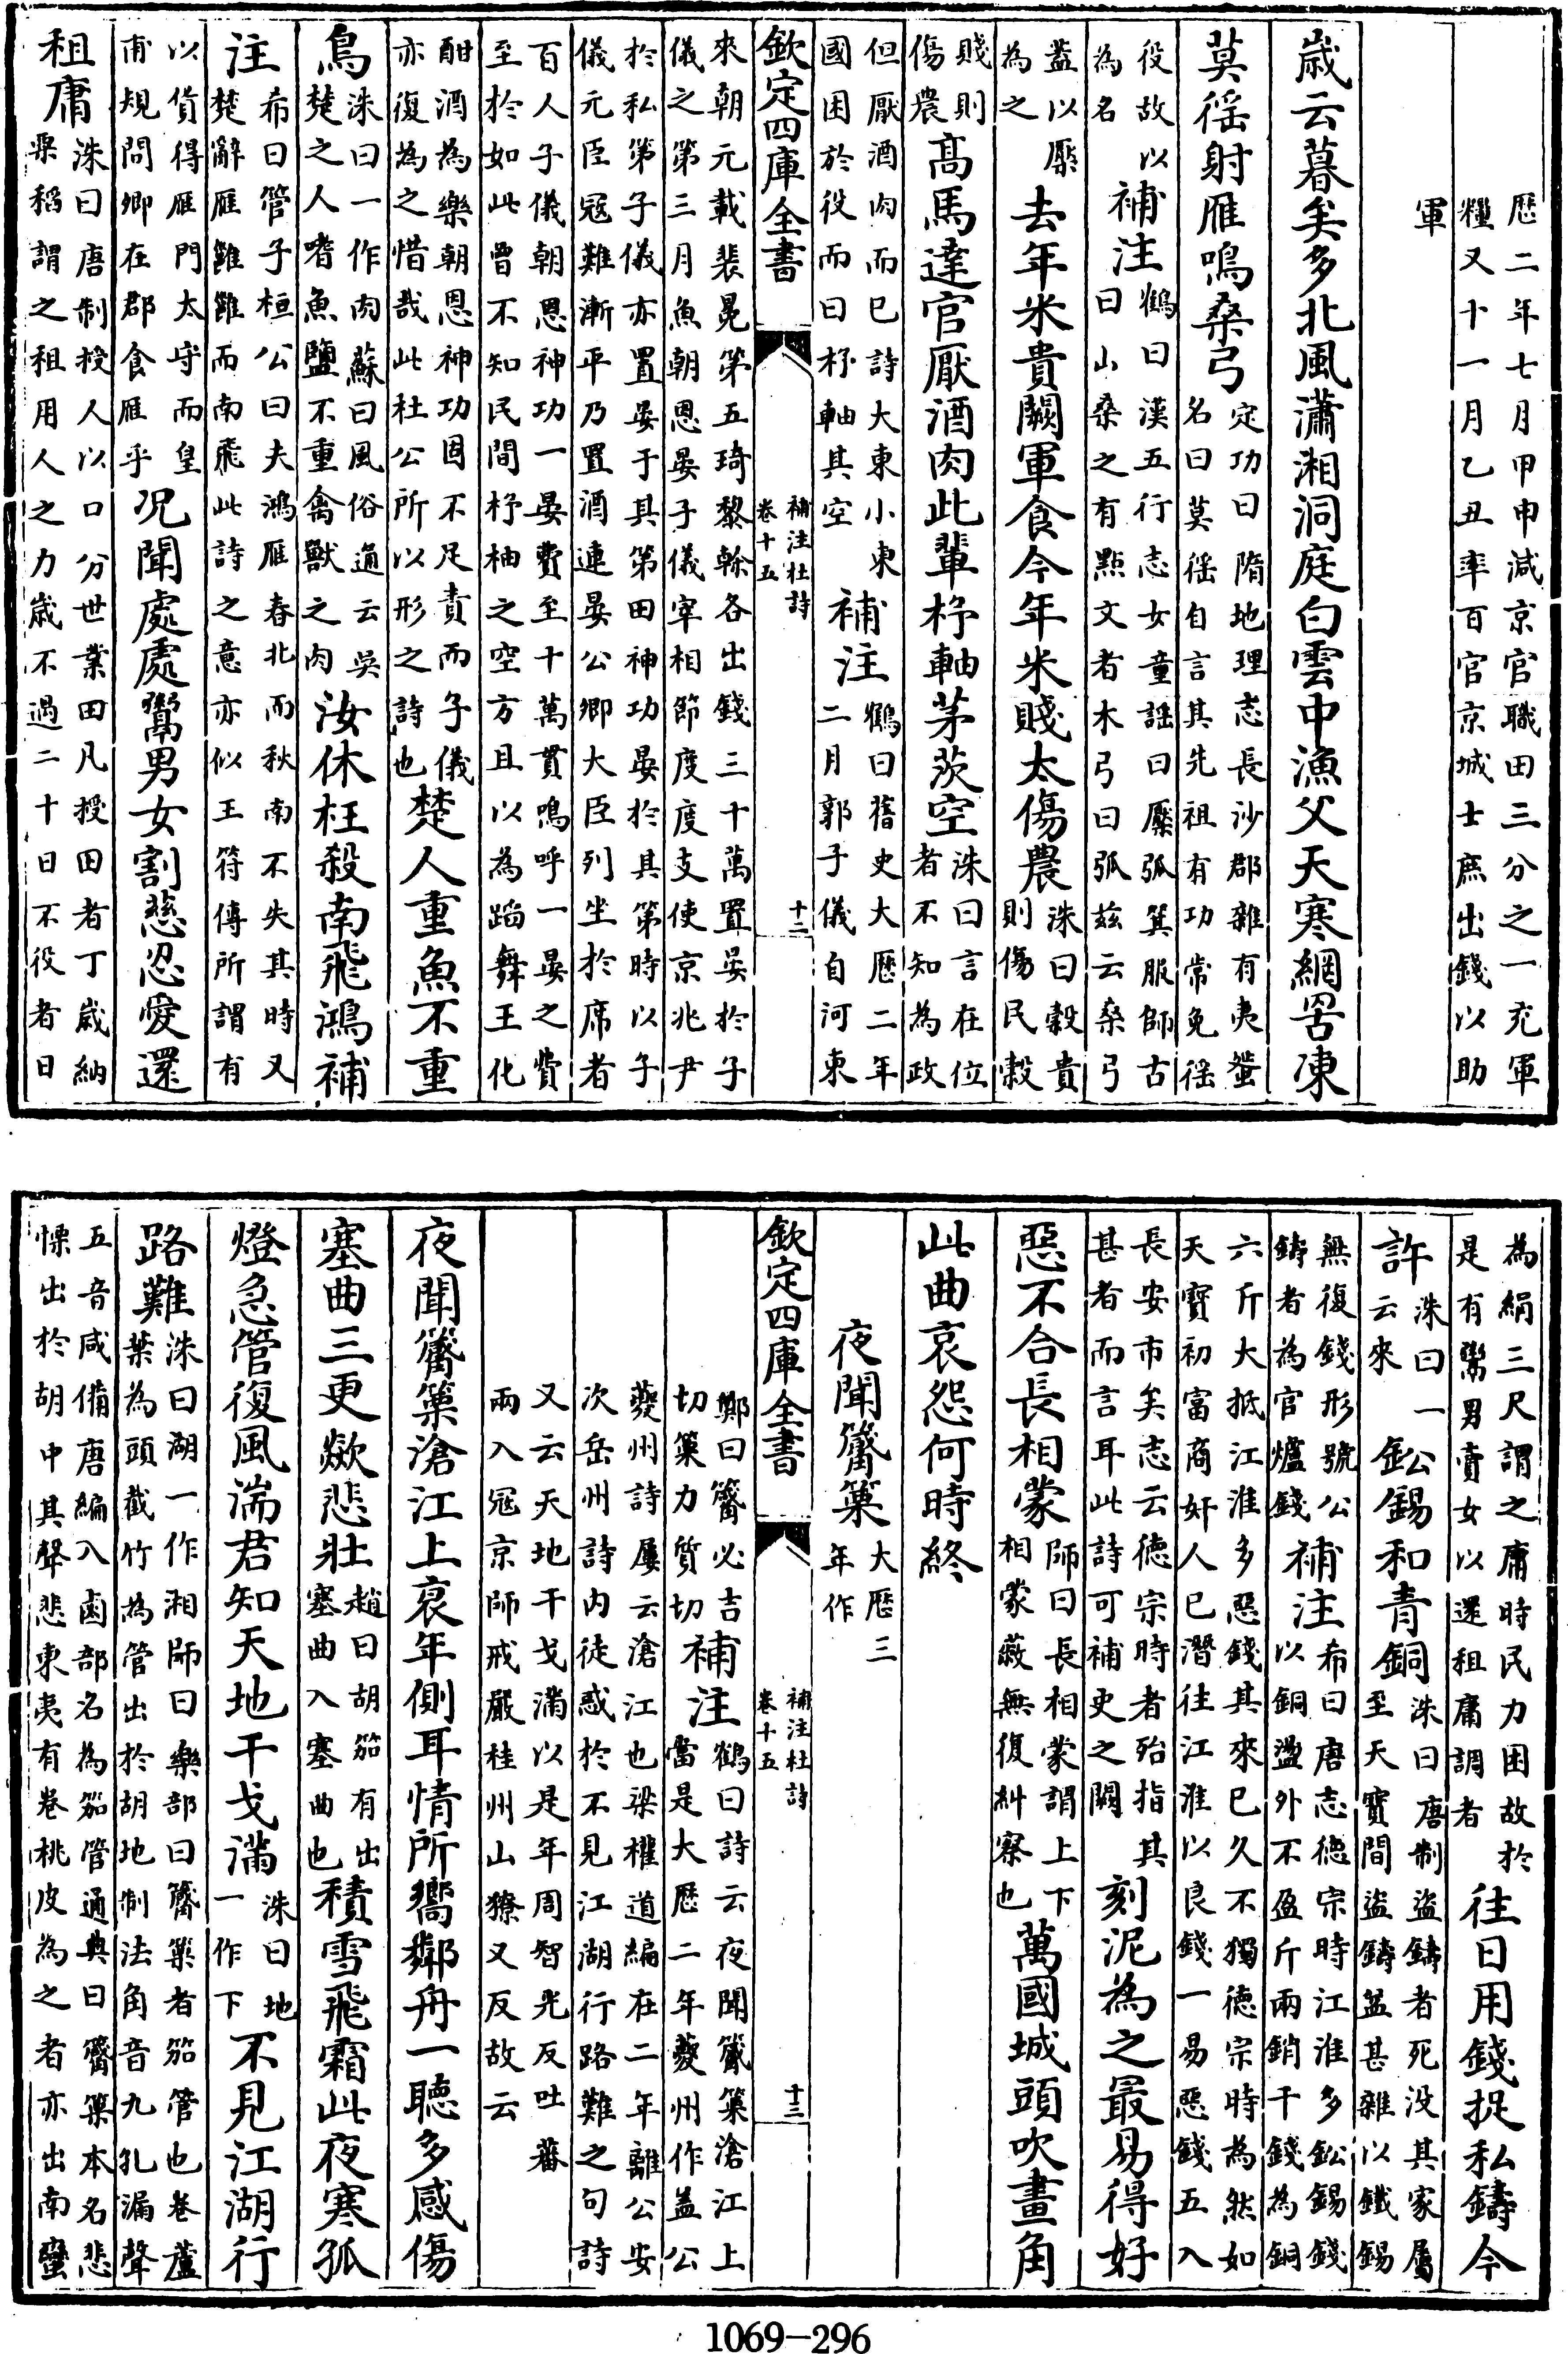 歴二年七月甲申減京官職田三分之一充軍
糧又十一月乙丑率百官京城士庶出錢以助
軍
歳云暮矣多北風瀟湘洞庭白雲中漁父天寒網罟凍
莫徭射雁鳴桑弓定功曰隋地理志長沙郡雜有夷蜑
名曰莫徭自言其先祖有功常免徭
役故以
為名補注鶴曰漢五行志女童謡曰檿弧箕服師古
曰山桑之有㸃文者木弓曰弧兹云桑弓
葢以檿
為之去年米貴闕軍食今年米賤太傷農洙曰穀貴
則傷民穀
賤則
傷農髙馬達官厭酒肉此輩杼軸茅茨空洙曰言在位
者不知為政
但厭酒肉而已詩大東小東
國困於役而曰杼軸其空補注鶴曰舊史大歴二年
二月郭子儀自河東
欽定四庫全書
補注杜詩
卷十五
十二
來朝元載裴冕第五琦黎榦各出錢三十萬置宴於子
儀之第三月魚朝恩宴子儀宰相節度度支使京兆尹
於私第子儀亦置宴于其第田神功宴於其第時以子
儀元臣冦難漸平乃置酒連宴公卿大臣列坐於席者
百人子儀朝恩神功一宴費至十萬貫嗚呼一宴之費
至於如此曽不知民間杼柚之空方且以為蹈舞王化
酣酒為樂朝恩神功固不足責而子儀
亦復為之惜哉此杜公所以形之詩也楚人重魚不重
鳥洙曰一作肉蘇曰風俗通云吳
楚之人嗜魚鹽不重禽獸之肉汝休枉殺南飛鴻補
注希曰管子桓公曰夫鴻雁春北而秋南不失其時又
楚辭雁雝雝而南飛此詩之意亦似王符傳所謂有
以貨得雁門太守而皇
甫規問卿在郡食雁乎况聞處處鬻男女割慈忍愛還
租庸洙曰唐制授人以口分世業田凡授田者丁歳納
粟稻謂之租用人之力歳不過二十日不役者日
為絹三尺謂之庸時民力困故於
是有鬻男賣女以還租庸調者往日用錢捉私鑄今
許洙曰一
云來鈆錫和青銅洙曰唐制盜鑄者死没其家屬
至天寶間盜鑄益甚雜以鐵錫
無復錢形號公
鑄者為官爐錢補注希曰唐志德宗時江淮多鈆錫錢
以銅盪外不盈斤兩銷千錢為銅
六斤大抵江淮多惡錢其來已久不獨德宗時為然如
天寶初富商奸人已潛往江淮以良錢一易惡錢五入
長安市矣志云德宗時者殆指其
甚者而言耳此詩可補史之闕刻泥為之最易得好
惡不合長相蒙師曰長相蒙謂上下
相蒙蔽無復糾察也萬國城頭吹畫角
此曲哀怨何時終
夜聞觱篥大歴三
年作
欽定四庫全書
補注杜詩
卷十五
十三
鄭曰觱必吉
切篥力質切補注鶴曰詩云夜聞觱篥滄江上
當是大歴二年夔州作葢公
夔州詩屢云滄江也梁權道編在二年離公安
次岳州詩内徒惑於不見江湖行路難之句詩
又云天地干戈滿以是年周智光反吐蕃
兩入冦京師戒嚴桂州山獠又反故云
夜聞觱篥滄江上衰年側耳情所嚮鄰舟一聽多感傷
塞曲三更歘悲壯趙曰胡笳有出
塞曲入塞曲也積雪飛霜此夜寒孤
燈急管復風湍君知天地干戈滿洙曰地
一作下不見江湖行
路難洙曰湖一作湘師曰樂部曰觱篥者笳管也卷蘆
葉為頭截竹為管出於胡地制法角音九孔漏聲
五音咸備唐編入鹵部名為笳管通典曰觱篥本名悲
慄出於胡中其聲悲東夷有卷桃皮為之者亦出南蠻
1069-296